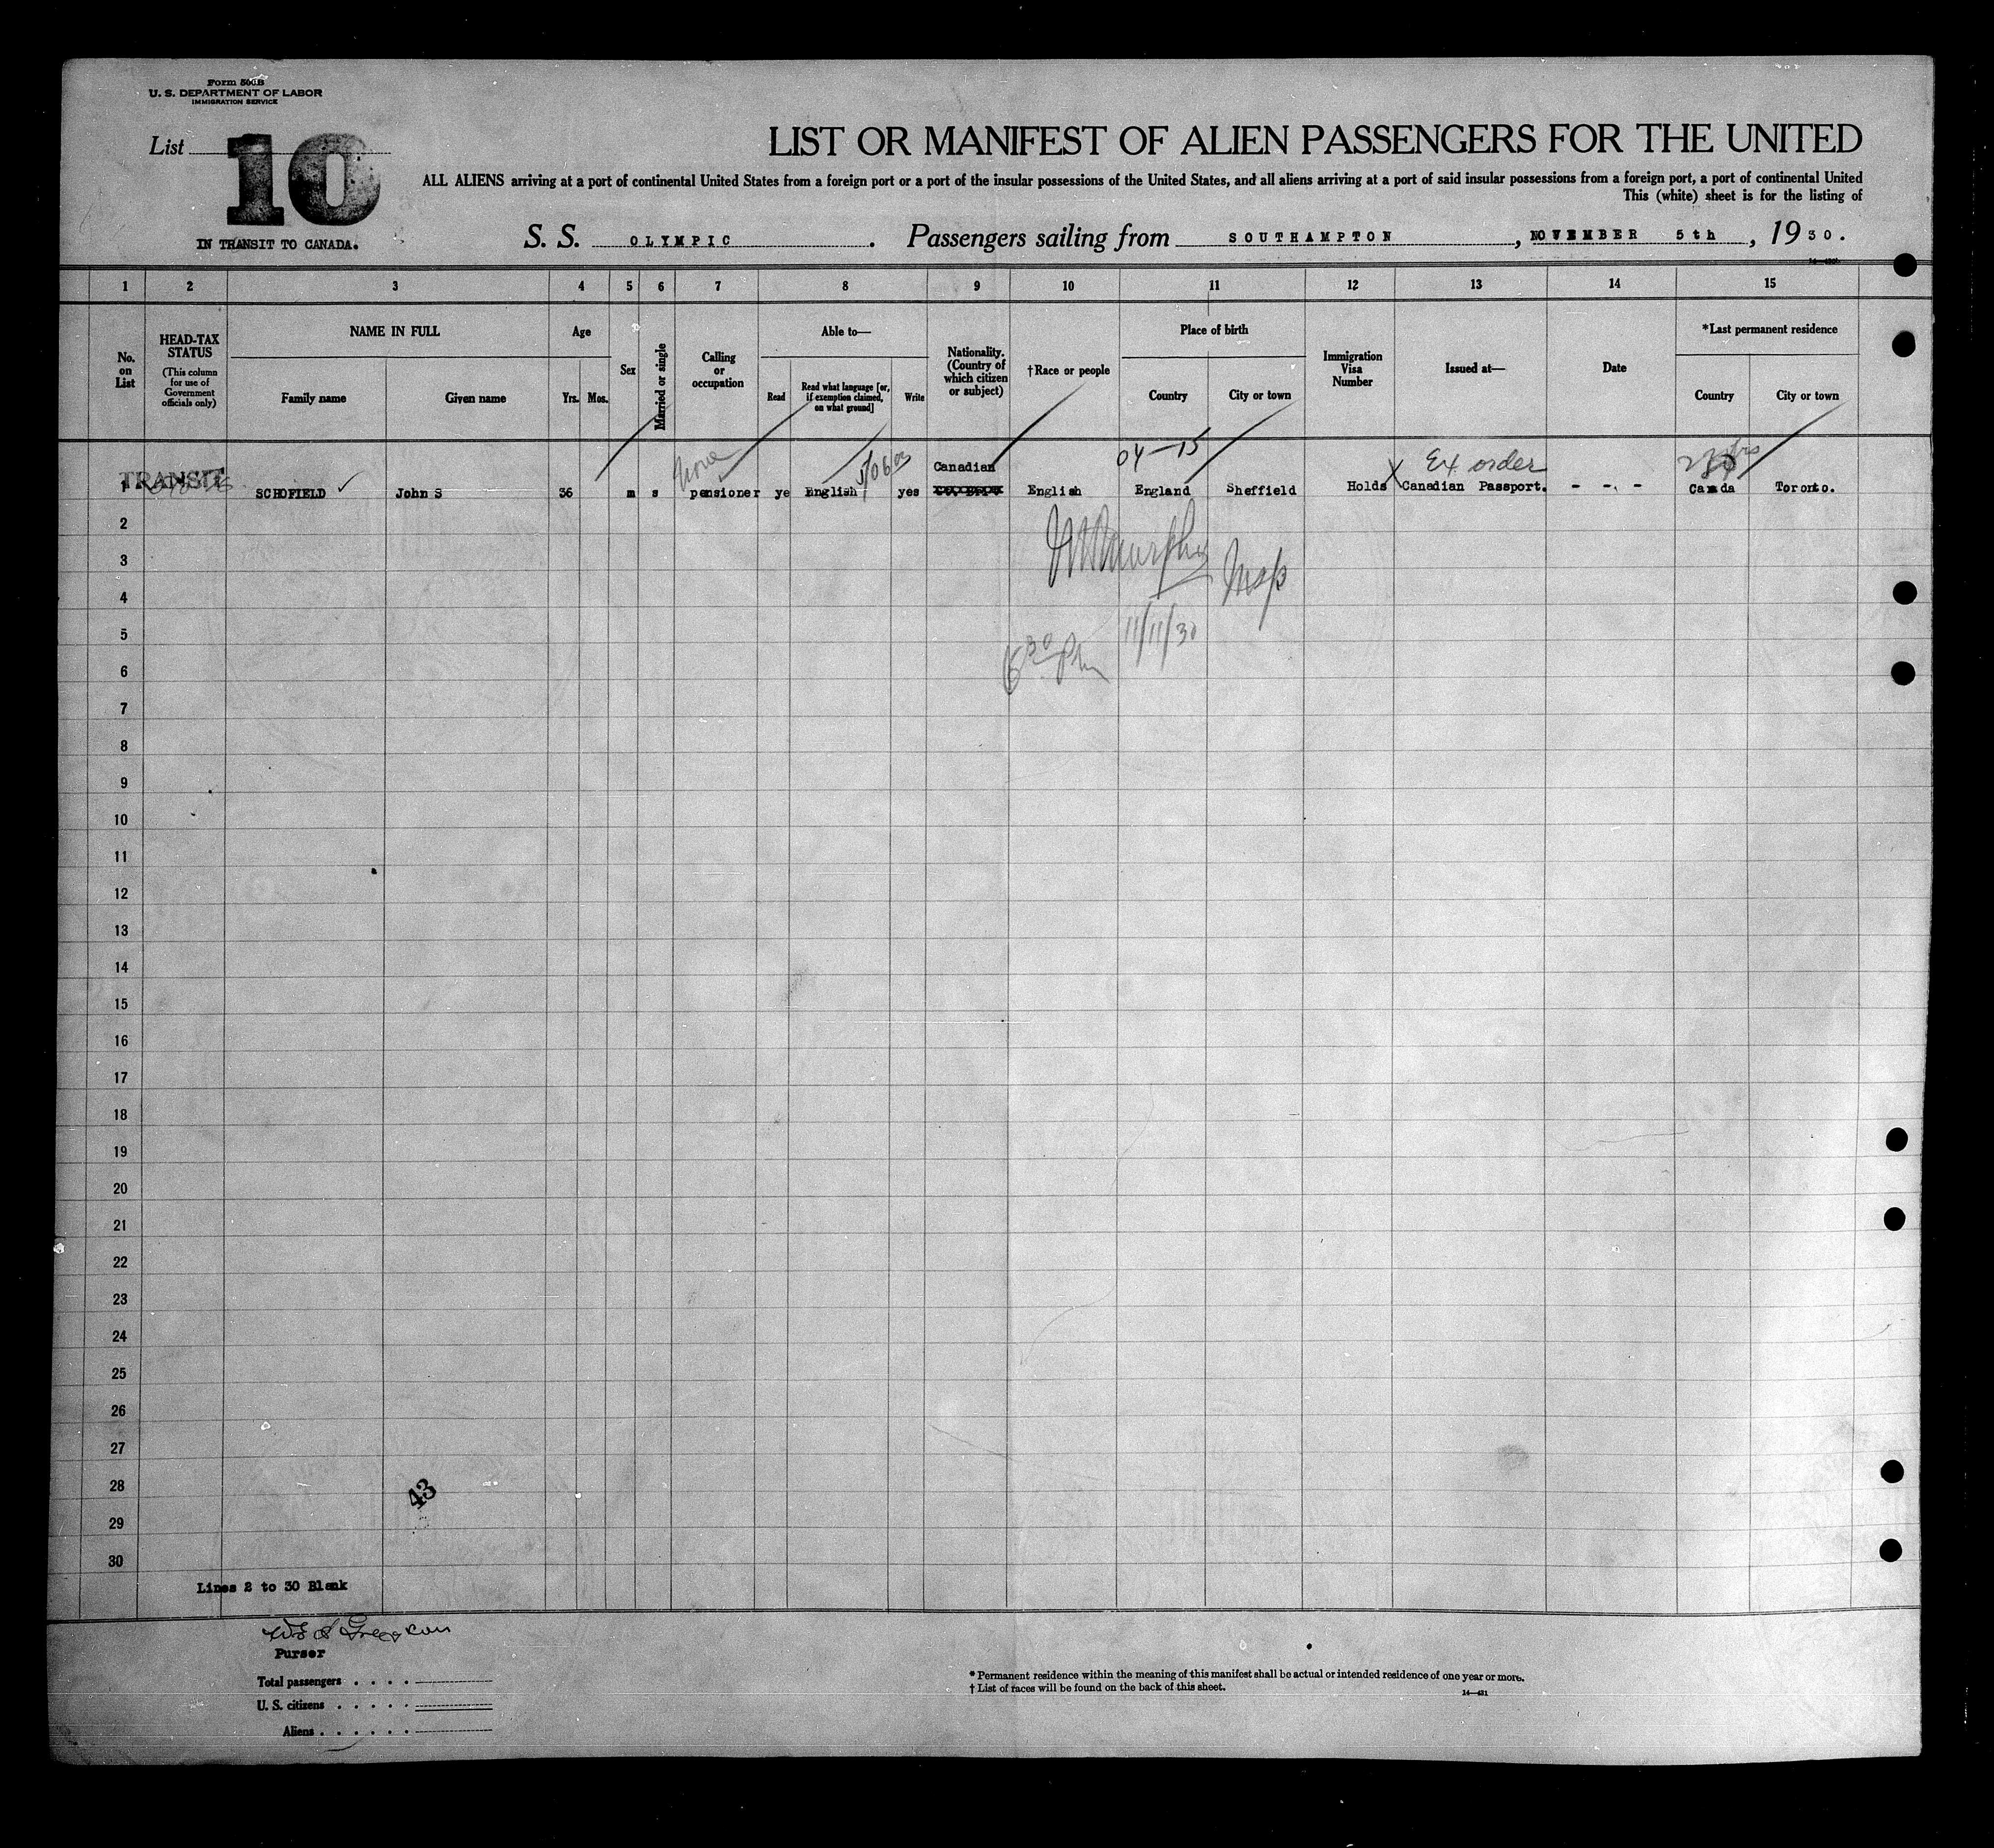 Form 500B
U. S. DEPARTMENT OF LABOR
IMMIGRATION SERVICE
List 10
IN TRANSIT TO CANADA.
LIST OR MANIFEST OF ALIEN PASSENGERS FOR THE UNITED
ALL ALIENS arriving at a port of continental United States from a foreign port or a port of the insular possessions of the United States, and all aliens arriving at a port of said insular possessions from a foreign port, a port of continental United
This (white) sheet is for the listing of
S. S. OLYMPIC. Passengers sailing from SOUTHAMPTON, NOVEMBER 5th, 1930.
1 2 3 4 5 6 7 8 9 10 11 12 13 14 15
No. on List
HEAD-TAX STATUS (This column for use of Government officials only)
NAME IN FULL
Family name Given name
Age
Yrs. Mos.
Sex
Married or single
Calling or occupation
Able to—
Read Read what language [or, if exemption claimed, on what ground] Write
Nationality. (Country of which citizen or subject)
†Race or people
Place of birth
Country City or town
Immigration Visa Number
Issued at—
Date
*Last permanent residence
Country City or town
None 04-15 Ex order
Canadian
TRANSIT
1 SCHOFIELD ✓ John S 36 m s pensioner ye English yes English England Sheffield Holds X Canadian Passport. - - - Canada Toronto.
2
3 Murphy Insp
4
5 11/11/30
6 6 30 Pm
7
8
9
10
11
12
13
14
15
16
17
18
19
20
21
22
23
24
25
26
27
28 43
29
30
Lines 2 to 30 Blank
Purser
Total passengers . . . .
U. S. citizens . . . . .
Aliens . . . . . .
* Permanent residence within the meaning of this manifest shall be actual or intended residence of one year or more.
† List of races will be found on the back of this sheet.
14—431